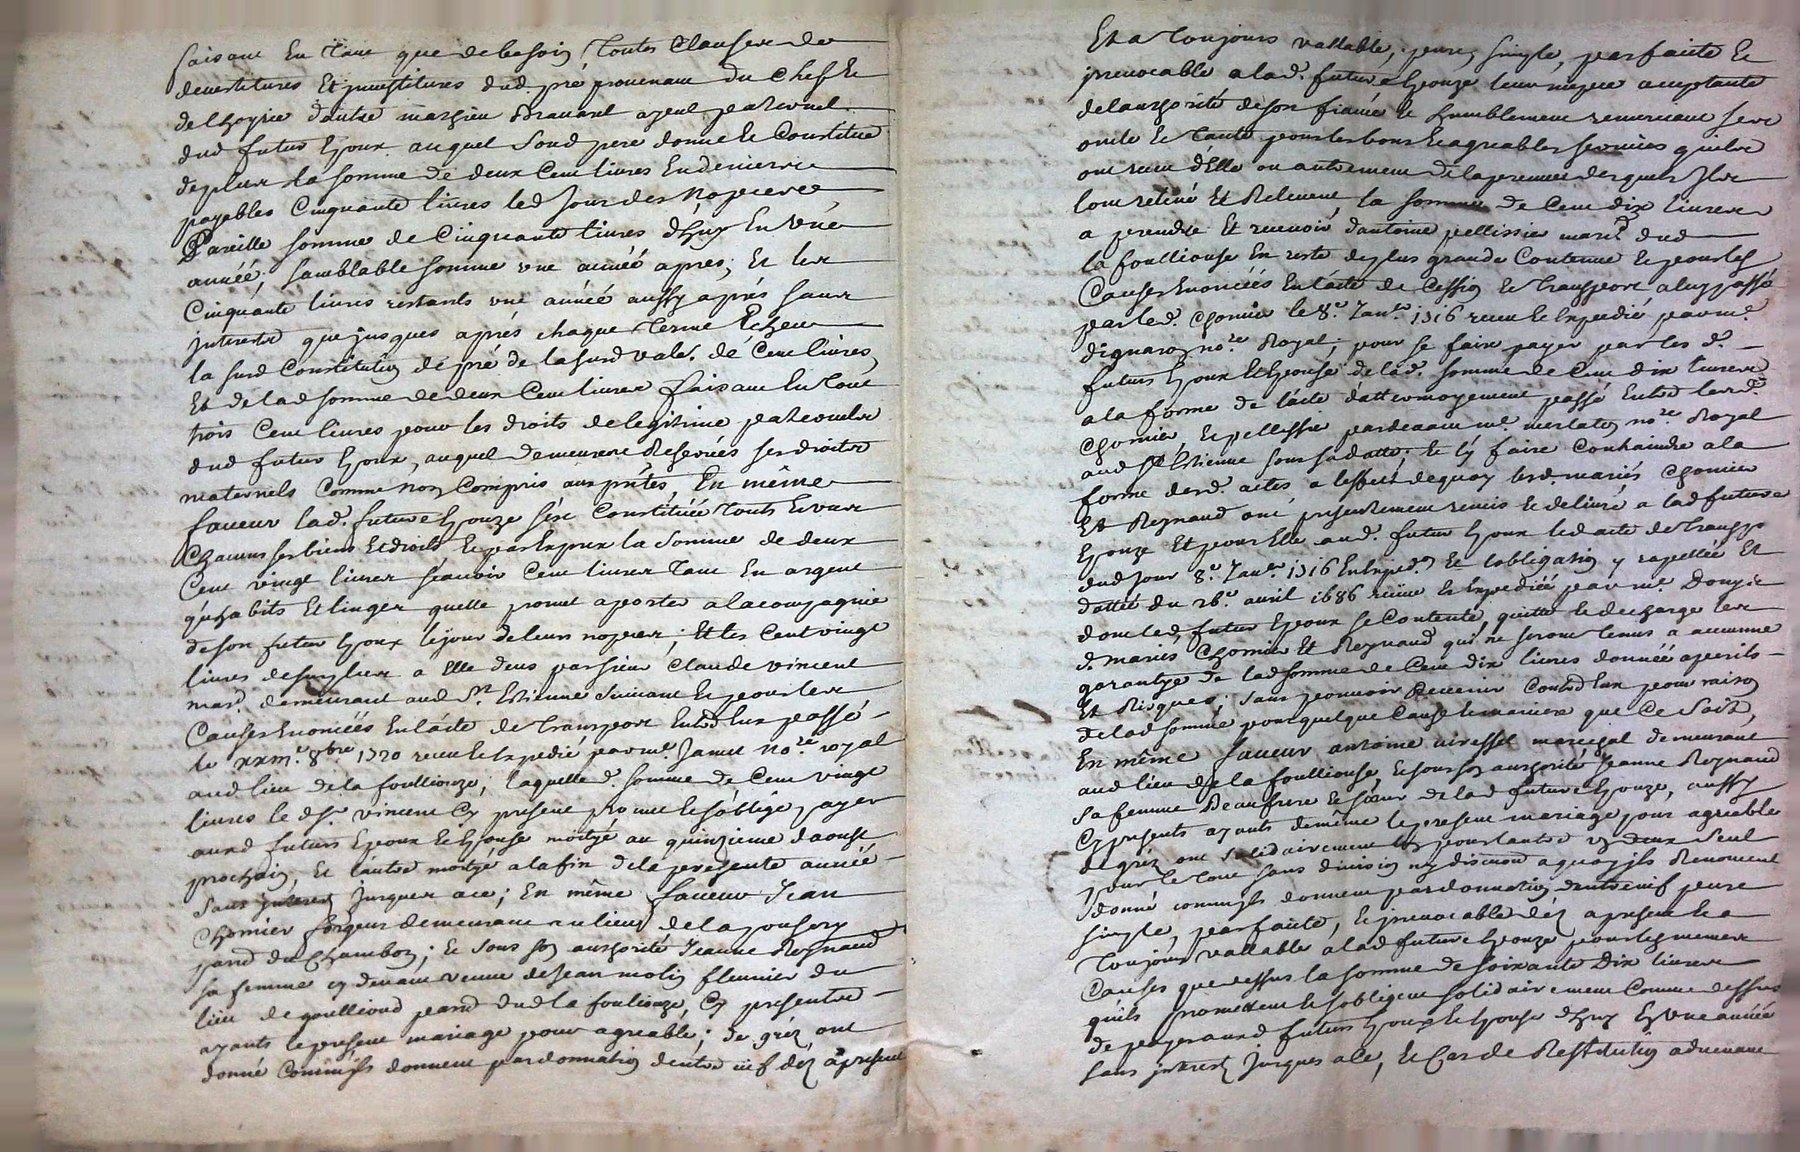 faisant En tant que de besoin toutes Clauses de
devestitures Et jnvestitures dud. pré provenant du Chef Et
de lhoyrie dautre mathieu Bravard ayeul paternel
dud futur Epoux auquel Sond pere donne Et Constitue
de plus la somme de deux Cent livres En deniers
payables Cinquante livres led Jour des Nopces
Pareille somme de Cinquante livres d'huy En Vne
année, samblable somme vne année apres, Et les
Cinquante livres restants vne année aussy aprés sans
jnterests que jusques aprés chaque terme Echeu
la susd Constitution de pré de la susd vale.r de Cent livres
Et de lad somme de deux Cent livres faisant En tout
trois Cent livres pour les droits de legitime paternelle
dud futur Epoux, auquel demeurent Reservés ses droits
maternels Comme non Compris aux pñtes En même
faveur lad. future Epouze s'est Constituée touts Et vns
Chacuns ses biens Et droits Et par Exprex la Somme de deux
Cent vingt livres scavoir Cent livres tant En argent
qu'habits Et linges quelle promet aporter a la compagnie
de son futur Epoux le jour de leurs nopces; Et les Cent vingt
livres de surplus a Elle deus par sieur Claude vincent
mard. demeurant aud St. Estienne Suivant Et pour les
Causes Enoncées En lácte de transport Entre Eux passé
le xxm.e 8bre 1720 receu Et Expedié par me. Jamet no.re royal
aud. lieu de la fouillouze; laquelle d. somme de Cent vingt
livres le d. sr. vincent Cy present promet Et s'oblige payer
ausd futurs Epoux Et Epouse moitye au quinzieme daoust
prochain, Et l'autre moitye a la fin de la presente année
sans jnterest jusques a ce; En même faveur Jean
Chomier forgeur demeurant au lieu de la
parr.e du Chambon; Et sous son authorité Jeanne Reynaud
sa femme cy devant veuve de Jean molin fleurier du
lieu de parr.e dud la fouliouze, Cy presents
ayants le present mariage pour agreable; de gréz ont
donné Comm'jls donnent par donnation d'entre vif déz a present
Et a toujours vallable, pure, simple, parfaite Et
jrrevocable a lad. future Epouze leur niepce acceptante
de lauthorité de son fiancé Et humblement remerciant ses
oncle Et tante pour les bons Et agreables services quils
ont receu d'Elle ou autrement de la preuve desquels Jls
lont relevé Et Relevent la somme de Cent dix livres
a prendre Et recevoir d'antoine pellissier mard. dud
la fouillouse En reste de plus grande Contenue Et pour les
Causes Enoncées En lácte de Cession Et transport a luy passé
par led. Chomier le 8.e Janv.r 1716 receu Et Expedié par me.
dignaron no.re Royal, pour se faire payer par les d.
futurs Epoux Et Epouse de lad. somme de Cent dix livres
a la forme de lácte d'attermoyement passé Entre lesd.
Chomier, Et pellissier pardevant me. no.re Royal
aud St. Estienne sous sa datte, Et l'y faire contraindre a la
forme desd. actes a l'effect de quoy lesd. mariés Chomier
Et Reynaud ont presentement remis Et delivré a lad future
Epouze Et pour Elle aud. futur Epoux led acte de transpt.
dud Jour 8.e Janv.er 1716 En Exped.on Et l'obligation y rapellée Et
dattée du 26.e avril 1686 reçüe Et Expediée par me. Donzie
dont led. futur Epoux se Contente, quitte Et decharge les
d. mariés Chomier Et Reynaud qui ne seront tenus a aucune
garantye de lad somme de Cent dix livres donnée a perils
Et Risques; sans pouvoir Revenir Contre Eux pour raison
de lad somme pour quelque Cause Et maniere que Ce Soit,
En même faveur antoine maréchal demeurant
aud lieu de la fouillouse, Et sous son authorité Jeanne Reynaud
sa femme Beaufrere Et sœur de lad future Epouze, aussy
Cy presents ayants de même le present mariage pour agreable
de gréz ont solidairement l'vn pour l'autre vn deux seul
pour le tout sans division ny discution a quoy jls Renoncent
donné comm'jls donnent par donnation d'entre vif pure
simple, parfaite, Et jrrevocable déz a present Et a
toujours vallable a lad future Epouze pour les mêmes
Causes que dessus la somme de soixante Dix livres
quils promettent Et s'obligent solidairement Comme dessus
de payer ausd futurs Epoux Et Epouse d'huy En Vne année
sans jnterest Jusques a Ce, Et Cas de Restitution advenant